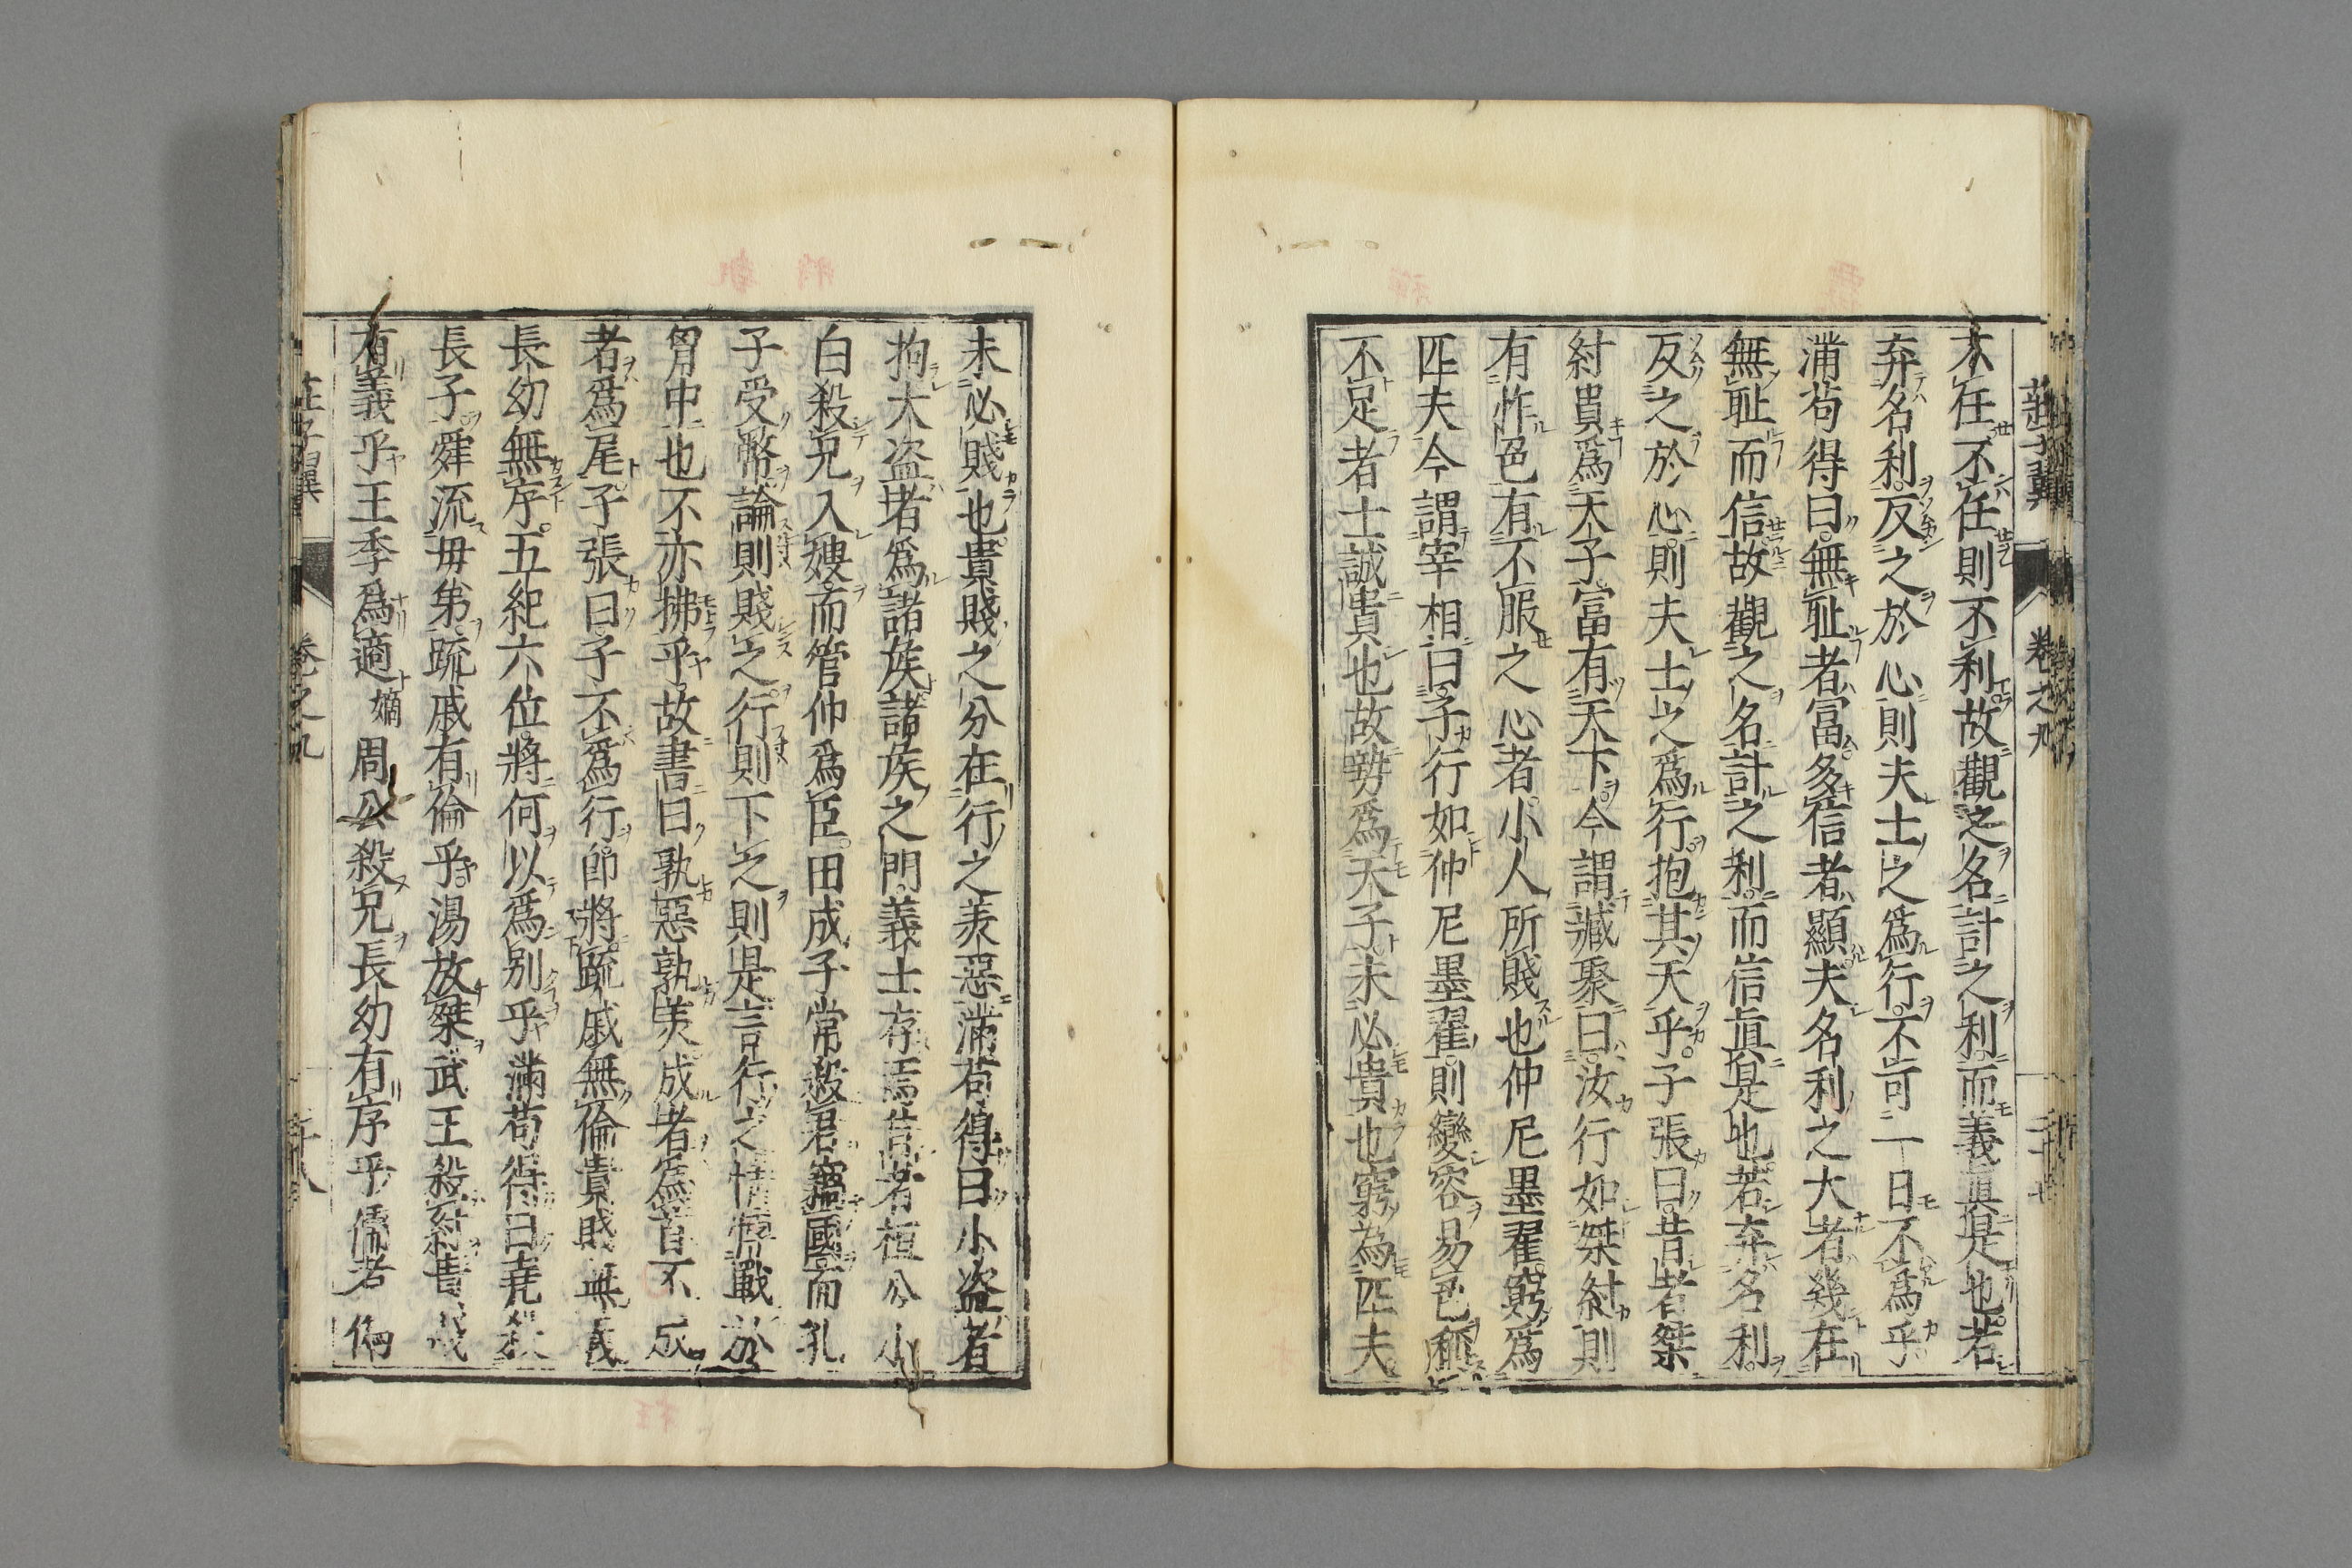 莊子翼 卷之九
不任不任則不利故觀之名計之利而義真是也若
弃名利反之於心則夫士之爲行不可一日不爲乎
滿苟得曰無恥者富多信者顯夫名利之大者幾在
無恥而信故觀之名計之利而信眞是也若弃名利
反之於心則夫士之爲行抱其天乎子張曰昔者桀
紂貴爲天子富有天下今謂臧聚曰汝行如桀紂則
有怍色有不服之心者小人所賤也仲尼墨翟窮爲
匹夫今謂宰相曰子行如仲尼墨翟則變容易色稱
不足者士誠貴也故勢爲天子未必貴也窮為匹夫
未必賤也貴賤之分在行之美惡滿苟得曰小盗者
拘大盗者爲諸矦諸矦之門義士存焉昔者桓公小
白殺兄入嫂而管仲爲臣田成子常殺君竊國而孔
子受幣論則賤之行則下之則是言行之情悖戰於
胷中也不亦拂乎故書曰孰惡孰美成者爲首不成
者爲尾子張曰子不爲行卽將疏戚無倫貴賤無義
長幼無序五紀六位將何以爲别乎滿苟得曰堯殺
長子舜流毋弟疏戚有倫乎湯放桀武王殺紂貴賤
有義乎王季爲適嫡周公殺兄長幼有序乎儒者僞
莊子翼 卷之九